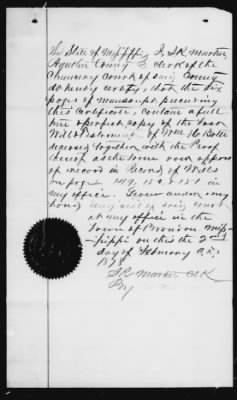 The State of Mississippi I S R Martin
County Clerk of the
Chancery Court of said County
do hereby certify, that the six
pages of manuscript preceding
this Certificate, contain a full
and perfect copy of the Last
Will & Testament of Wm H
deceased together with the Proof
thereof as the same now appears
of record in Record of Wills
on page 149, 150, & 151 in
my office. Given under my
hand and seal of said court
at my office in the
Town of Brandon Miss-
issippi on this the 2nd
day of February A.D.
1878
S R Martin Clk
By